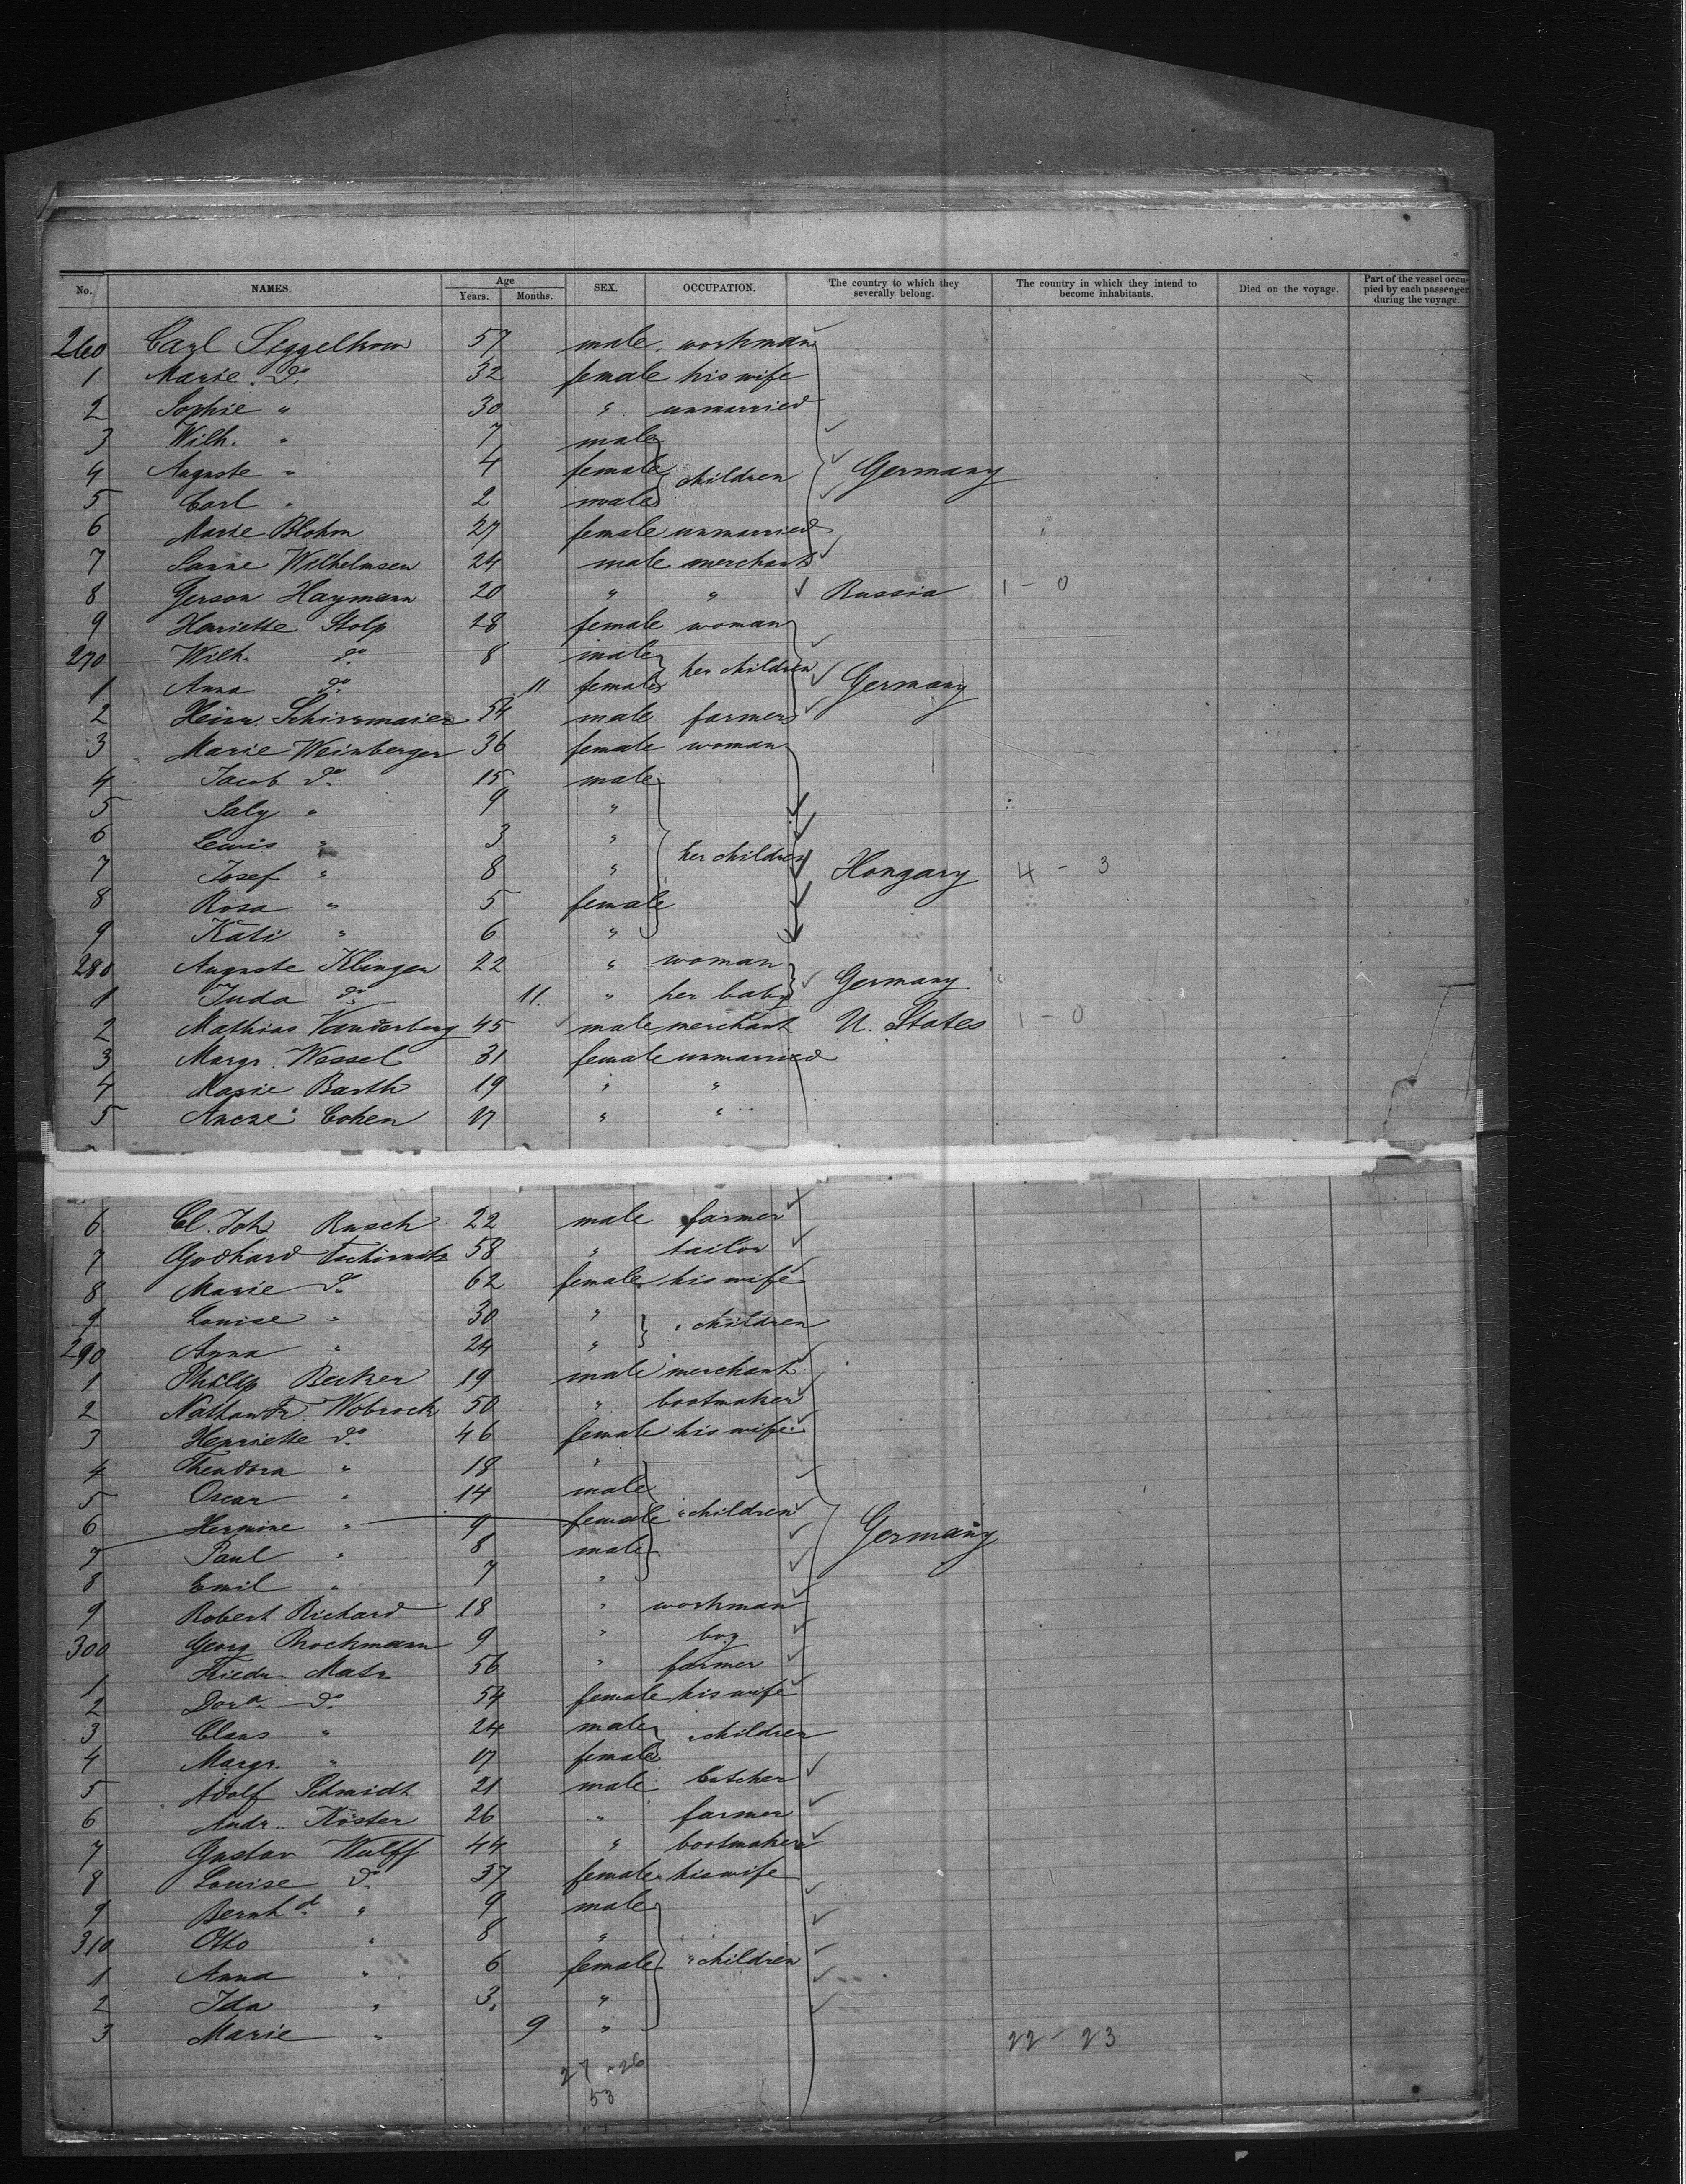 No. NAMES. Age Years. Months. SEX. OCCUPATION. The country to which they severally belong. The country in which they intend to become inhabitants. Died on the voyage. Part of the vessel occupied by each passenger during the voyage.
260 Carl Siggelkow 57 male workman
1 Marie do 32 female his wife
2 Sophie " 30 " unmarried
3 Wilh. " 7 male
4 Auguste " 4 female children Germany
5 Carl " 2 male
6 Marie Blohm 27 female unmarried
7 Sanne Wilhelmsen 24 male merchant
8 Gerson Haymann 20 " " Russia 1 - 0
9 Henriette Stolp 28 female woman
270 Wilh. do 8 male her children
1 Anna do 11 female Germany
2 Heinr. Schirrmaier 54 male farmer
3 Marie Weinberger 36 female woman
4 Jacob do 15 male
5 Saly " 9 "
6 Lewis " 3 "
7 Josef " 8 " her children Hongary 4 - 3
8 Rosa " 5 female
9 Kati " 6 "
280 Auguste Klinger 22 " woman Germany
1 Juda do 11 " her baby
2 Mathias Vanderberg 45 male merchant U. States 1 - 0
3 Margr. Wessel 31 female unmarried
4 Marie Barth 19 " "
5 Cohen 17 " "
6 Cl. Joh Rusch 22 male farmer
7 Godhard 58 " tailor
8 Marie do 62 female his wife
9 Louise " 30 " " children
290 Anna " 24 "
1 Philip Becker 19 male merchant
2 Wobrock 50 " bootmaker
3 Henriette do 46 female his wife
4 Theodora " 18 "
5 Oscar " 14 male
6 Hermine " 9 female " children
7 Paul " 8 male Germany
8 Emil " 7 "
9 Robert Richard 18 " workman
300 Georg Brockmann 9 " boy
1 Friedr. Matz 56 " farmer
2 Dora do 54 female his wife
3 Claus " 24 male " children
4 Margr. " 17 female
5 Adolf Schmidt 21 male butcher
6 Andr. Köster 26 " farmer
7 Gustav Wulff 44 " bootmaker
8 Louise do 37 female his wife
9 Bernhd. " 9 male
310 Otto " 8 "
1 Anna " 6 female " children
2 Ida " 3 "
3 Marie " 9 " 22 - 23
27 - 26
53